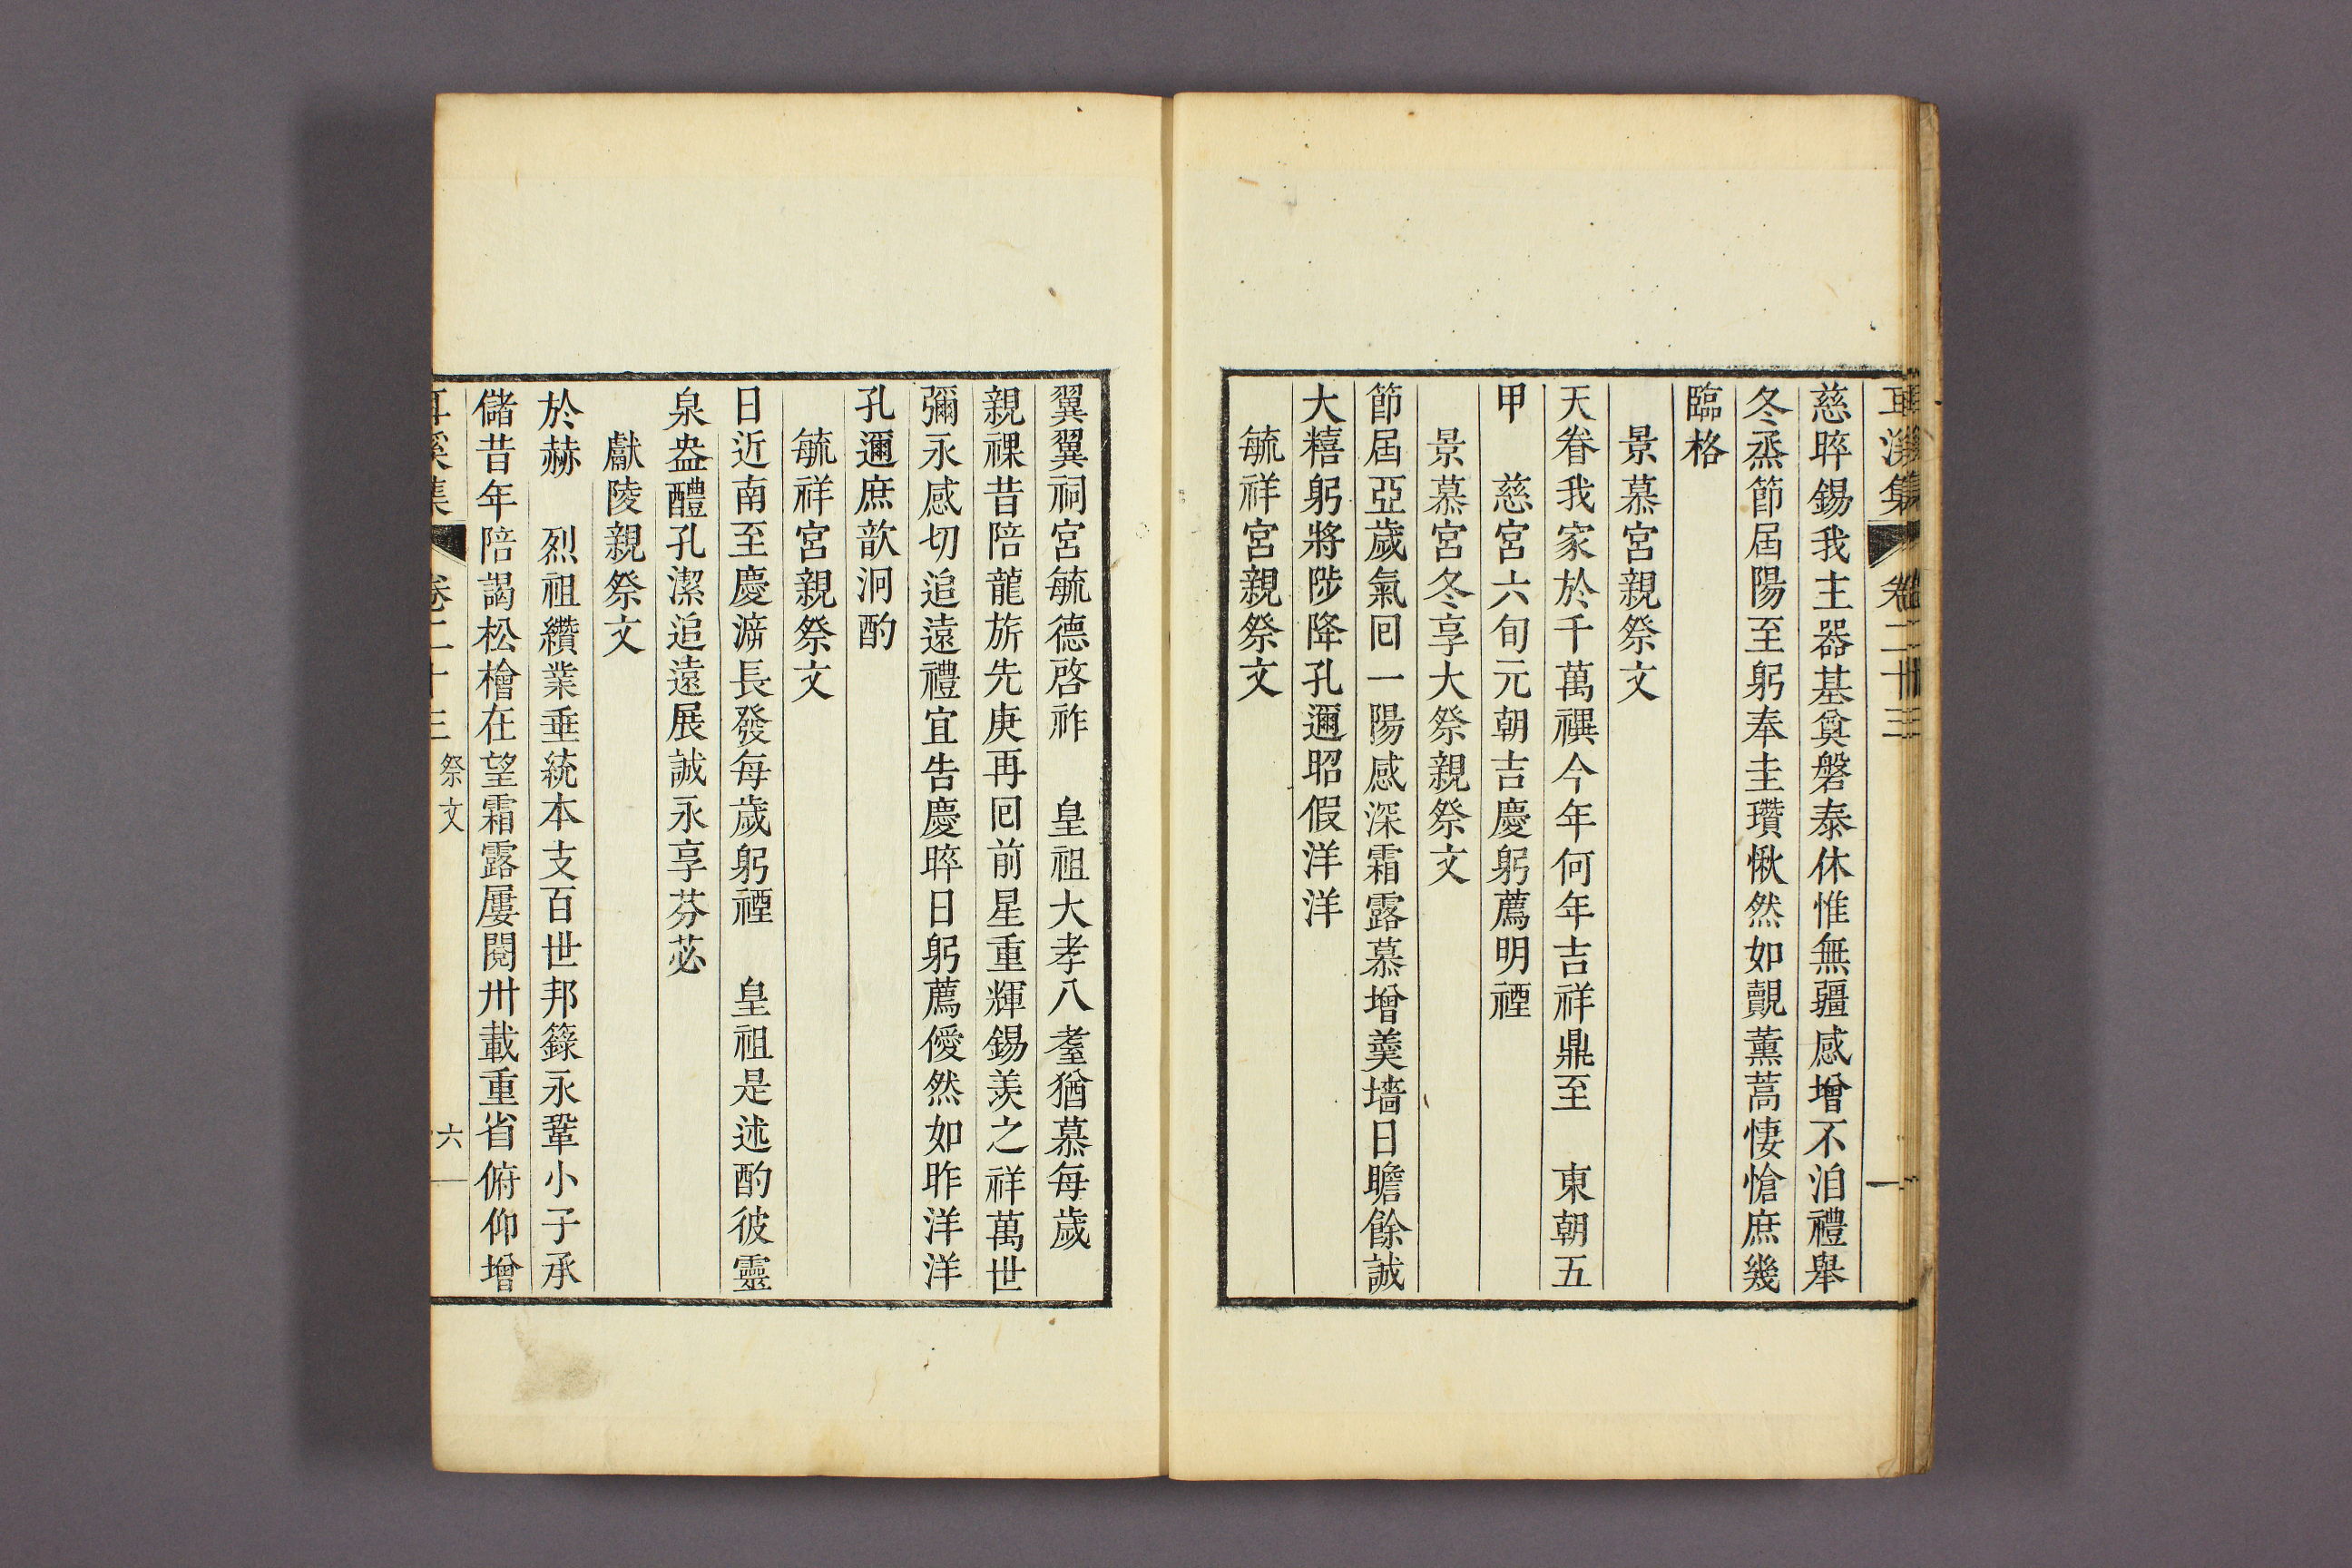 耳溪集 卷二十三
慈晬錫我主器基奠磐泰休惟無疆感增不洎禮舉
冬烝節屆陽至躬奉圭瓚愀然如覿薰蒿悽愴庶幾
臨格
景慕宮親祭文
天眷我家於千萬禩今年何年吉祥鼎至 東朝五
甲 慈宮六旬元朝吉慶躬薦明禋
景慕宮冬享大祭親祭文
節屆亞歲氣回一陽感深霜露慕增羹墻日瞻餘誠
大糦躬將陟降孔邇昭假洋洋
毓祥宮親祭文
翼翼祠宮毓德啓祚 皇祖大孝八耋猶慕每歲
親祼昔陪龍旂先庚再回前星重輝錫羨之祥萬世
彌永感切追遠禮宜告慶晬日躬薦僾然如昨洋洋
孔邇庶歆泂酌
毓祥宮親祭文
日近南至慶渧長發每歲躬禋 皇祖是述酌彼靈
泉盎醴孔潔追遠展誠永享芬苾
獻陵親祭文
於赫 烈祖纘業垂統本支百世邦籙永鞏小子承
儲昔年陪謁松檜在望霜露屢閱卅載重省俯仰增
耳溪集 卷二十三 祭文 六